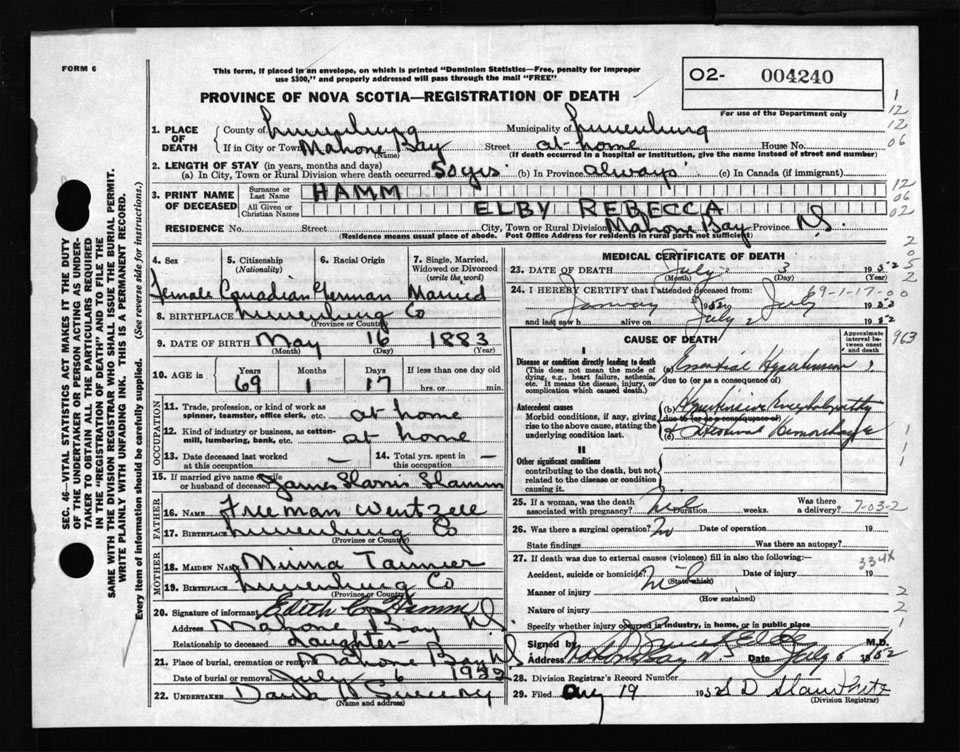 FORM 6
This form, if placed in an envelope, on which is printed "Dominion Statistics—Free, penalty for improper
use $300," and properly addressed will pass through the mail "FREE"
O2- 004240
For use of the Department only
PROVINCE OF NOVA SCOTIA—REGISTRATION OF DEATH
1. PLACE OF DEATH
County of Lunenburg Municipality of Lunenburg
If in City or Town Mahone Bay Street at home House No.
(Name) (If death occurred in a hospital or institution, give the name instead of street and number)
2. LENGTH OF STAY (in years, months and days)
(a) In City, Town or Rural Division where death occurred 50 yrs. (b) In Province always (c) In Canada (if immigrant)
3. PRINT NAME OF DECEASED
Surname or Last Name HAMM
All Given or Christian Names ELBY REBECCA
RESIDENCE No. Street City, Town or Rural Division Mahone Bay Province N.S.
(Residence means usual place of abode. Post Office Address for residents in rural parts not sufficient)
4. Sex 5. Citizenship (Nationality) 6. Racial Origin 7. Single, Married, Widowed or Divorced (write the word)
Female Canadian German Married
8. BIRTHPLACE Lunenburg Co
(Province or County)
9. DATE OF BIRTH May 16 1883
(Month) (Day) (Year)
10. AGE in Years Months Days If less than one day old
69 1 17 hrs. or min.
OCCUPATION
11. Trade, profession, or kind of work as spinner, teamster, office clerk, etc. at home
12. Kind of industry or business, as cotton-mill, lumbering, bank, etc. at home
13. Date deceased last worked at this occupation —
14. Total yrs. spent in this occupation —
15. If married give name of wife or husband of deceased James Harris Hamm
FATHER
16. NAME Freeman Wentzell
17. BIRTHPLACE Lunenburg Co
(Province or County)
MOTHER
18. MAIDEN NAME Minna Tanner
19. BIRTHPLACE Lunenburg Co
(Province or Country)
20. Signature of informant Edith C. Hamm
Address Mahone Bay N.S.
Relationship to deceased daughter
21. Place of burial, cremation or removal Mahone Bay N.S.
Date of burial or removal July 6 1952
22. UNDERTAKER
(Name and address)
MEDICAL CERTIFICATE OF DEATH
23. DATE OF DEATH July 3 1952
(Month) (Day) (Year)
24. I HEREBY CERTIFY that I attended deceased from:
69-1-17-00
January 1952 July 1952
and last saw h alive on July 2 1952
CAUSE OF DEATH
Approximate interval between onset and death
963
I
Disease or condition directly leading to death
(This does not mean the mode of dying, e.g., heart failure, asthenia, etc. It means the disease, injury, or complication which caused death.)
(a) Essential Hypertension
due to (or as a consequence of)
Antecedent causes
Morbid conditions, if any, giving rise to the above cause, stating the underlying condition last.
(b) Hypertensive Encephalopathy
due to (or as a consequence of)
(c) & Cerebral Hemorrhage
II
Other significant conditions
contributing to the death, but not related to the disease or condition causing it.
25. If a woman, was the death associated with pregnancy? Nil Duration weeks. Was there a delivery?
7-03-2
26. Was there a surgical operation? No Date of operation 19
State findings Was there an autopsy?
27. If death was due to external causes (violence) fill in also the following:—
334X
Accident, suicide or homicide? Nil Date of injury 19
(State which)
Manner of injury
(How sustained)
Nature of injury
Specify whether injury occurred in industry, in home, or in public place
Signed by M.D.
Address Mahone Bay N. Date July 6 1952
28. Division Registrar's Record Number
29. Filed Aug 19 1952
(Division Registrar)
SEC. 46—VITAL STATISTICS ACT MAKES IT THE DUTY
OF THE UNDERTAKER OR PERSON ACTING AS UNDER-
TAKER TO OBTAIN ALL THE PARTICULARS REQUIRED
IN THE "REGISTRATION OF DEATH" AND TO FILE THE
SAME WITH THE DIVISION REGISTRAR WHO SHALL ISSUE THE BURIAL PERMIT.
WRITE PLAINLY WITH UNFADING INK. THIS IS A PERMANENT RECORD.
Every item of information should be carefully supplied. (See reverse side for instructions.)